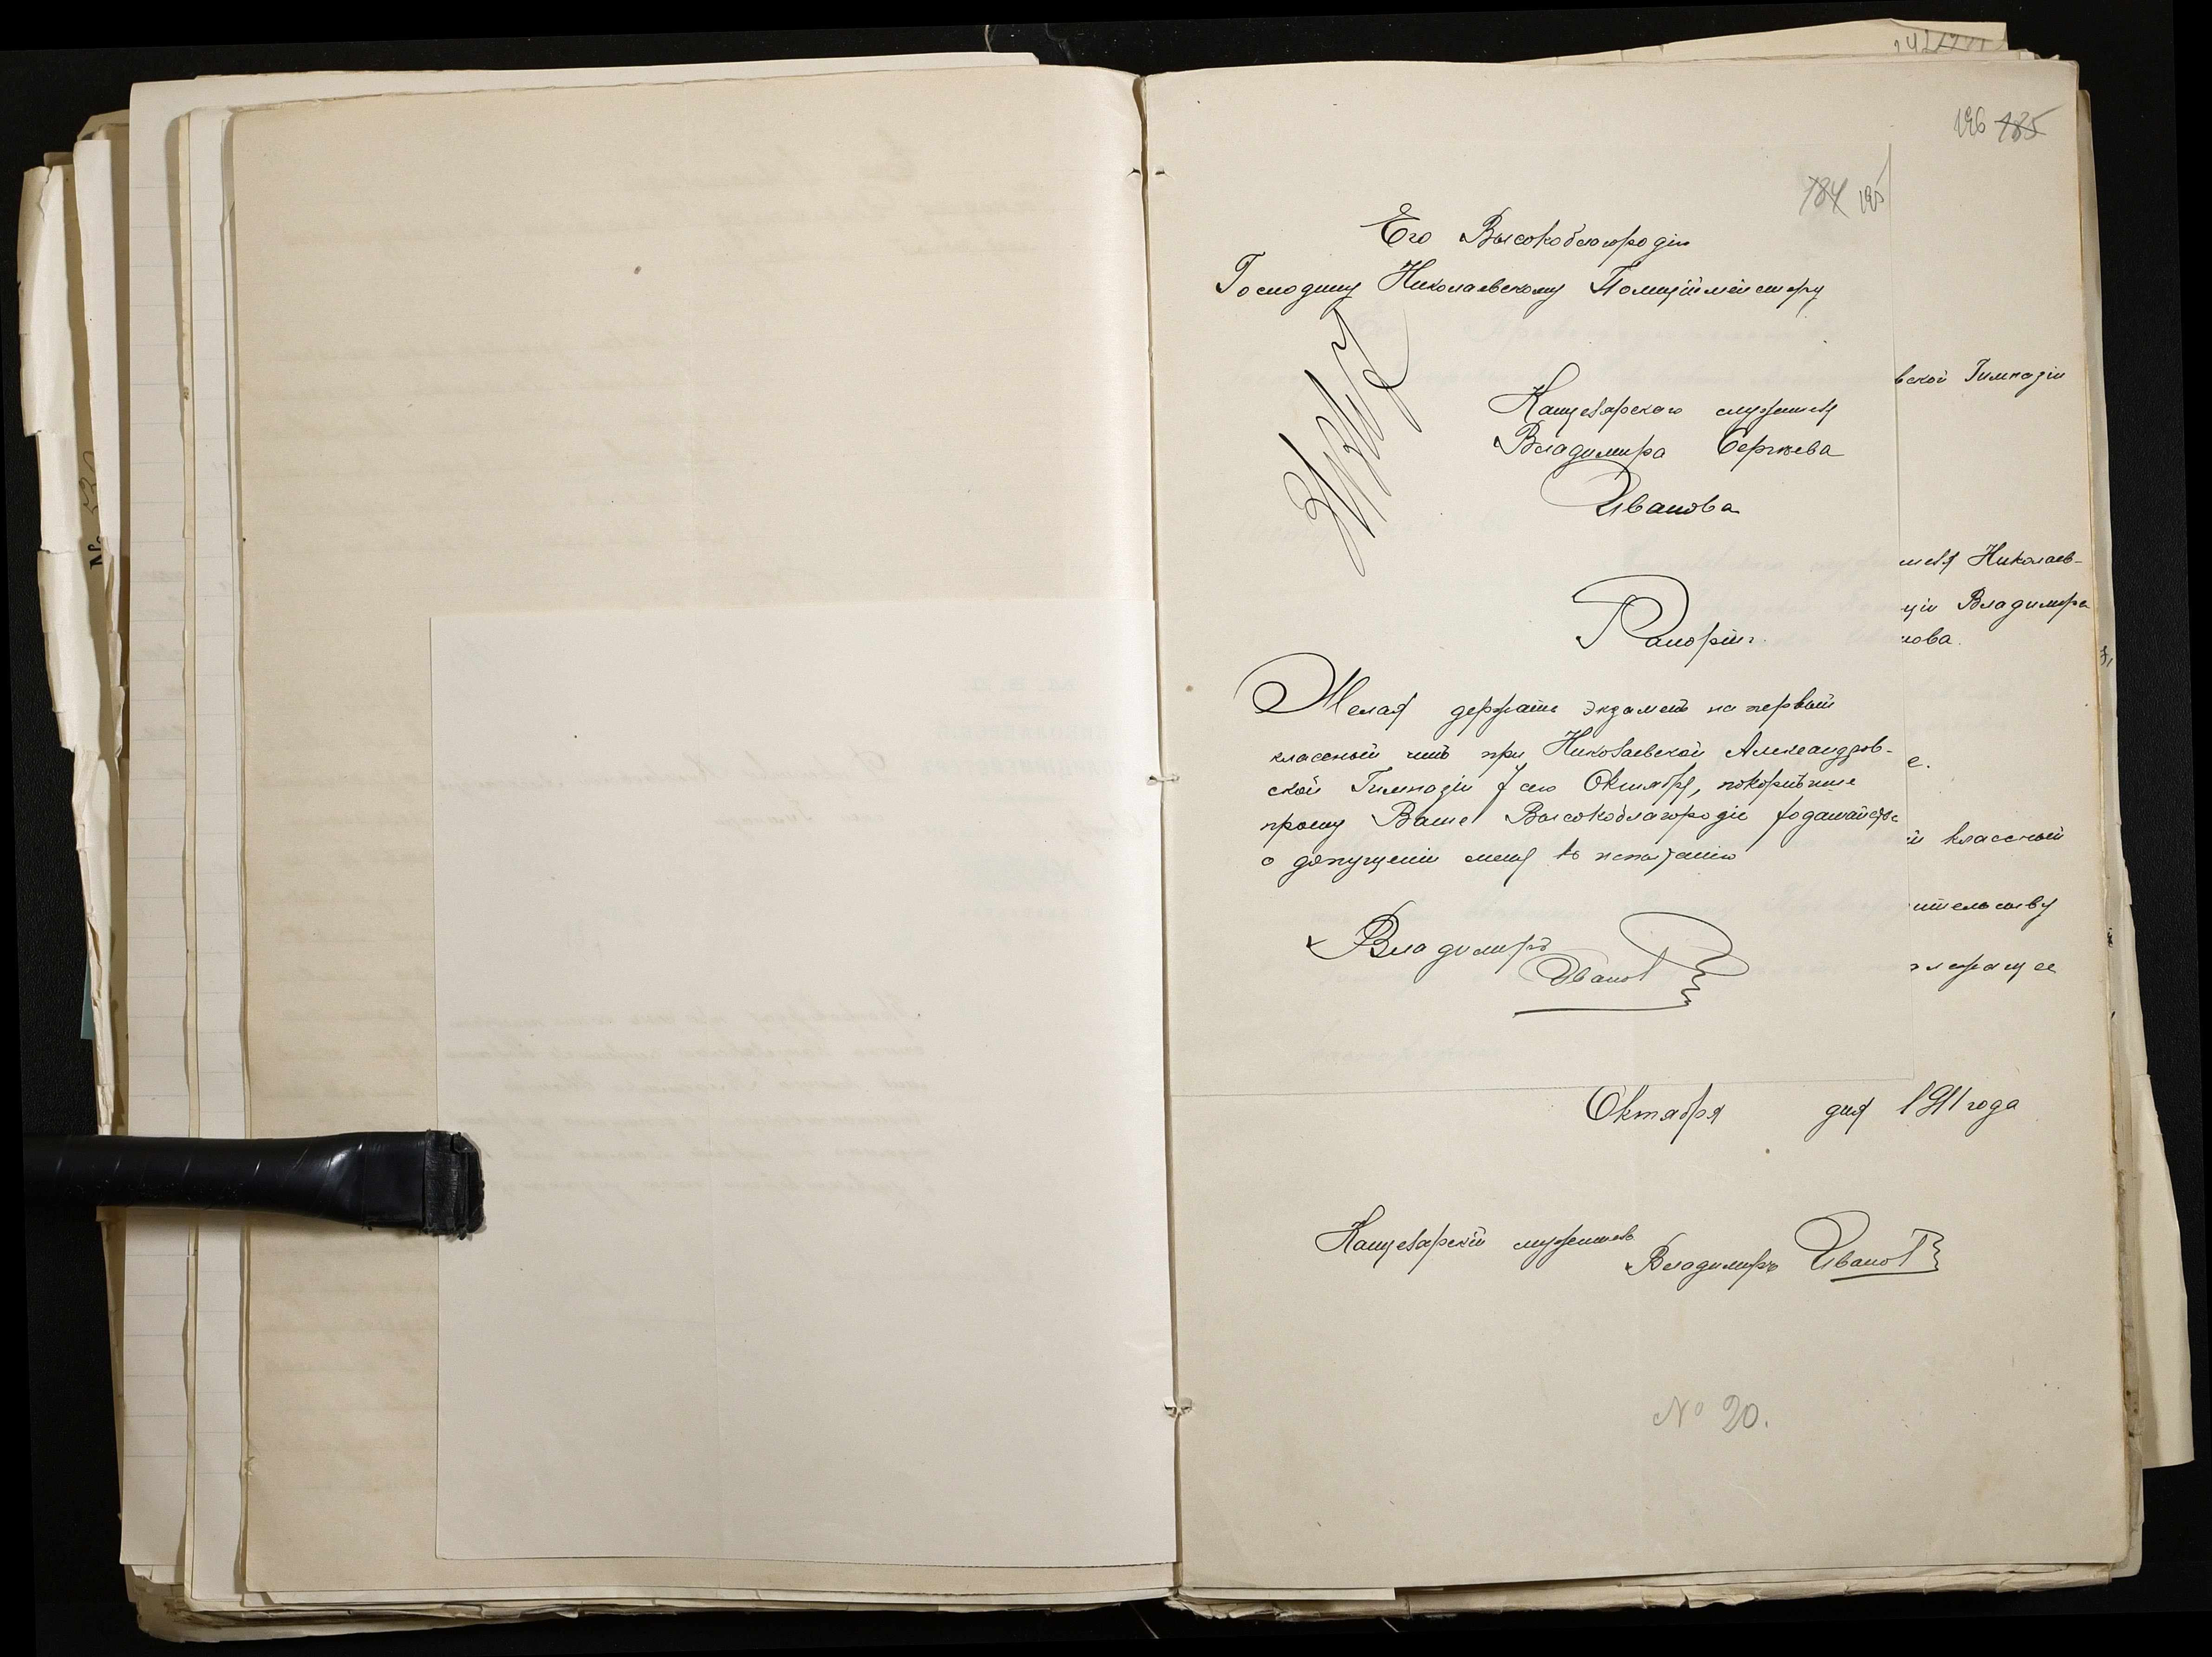 196 185
184 195
Его Высокоблагородію
Господину Николаевскому Полиціймейстеру
Канцелярскаго служителя
Владимира Сергѣева
Иванова
Рапортъ.
Желая держать экзаменъ на первый
классный чинъ при Николаевской Александров-
ской Гимназіи 7 сего Октября, покорнѣйше
прошу Ваше Высокоблагородіе ходатайства
о допущеніи меня къ испытанію
Владимиръ
Иванов
вской Гимназіи
теля Николаев-
ціи Владимира
нова.
е.
й классный
ительству
лежащее
Октября дня 1911 года
Канцелярскій служитель
Владимиръ Иванов
№ 20.